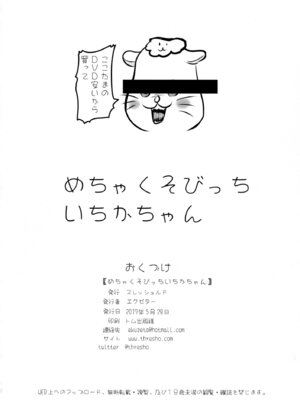 ここたまの
DVD安いから
買って
めちゃくそびっち
いちかちゃん
おくづけ
【めちゃくそびっちいちかちゃん】
発行 フレッシュルド
発行者 エクゼター
発行日 2019年5月26日
印刷 トム出版様
連絡先 akuzeta@hotmail.com
サイト www.thresho.com
twitter @thresho
WEB上へのアップロード、無断転載・複製、及び18歳未満の閲覧・購読を禁じます。